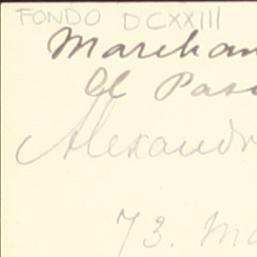 FONDO DCXXIII
Marchan
El Paso
Alexandr
73. Ma